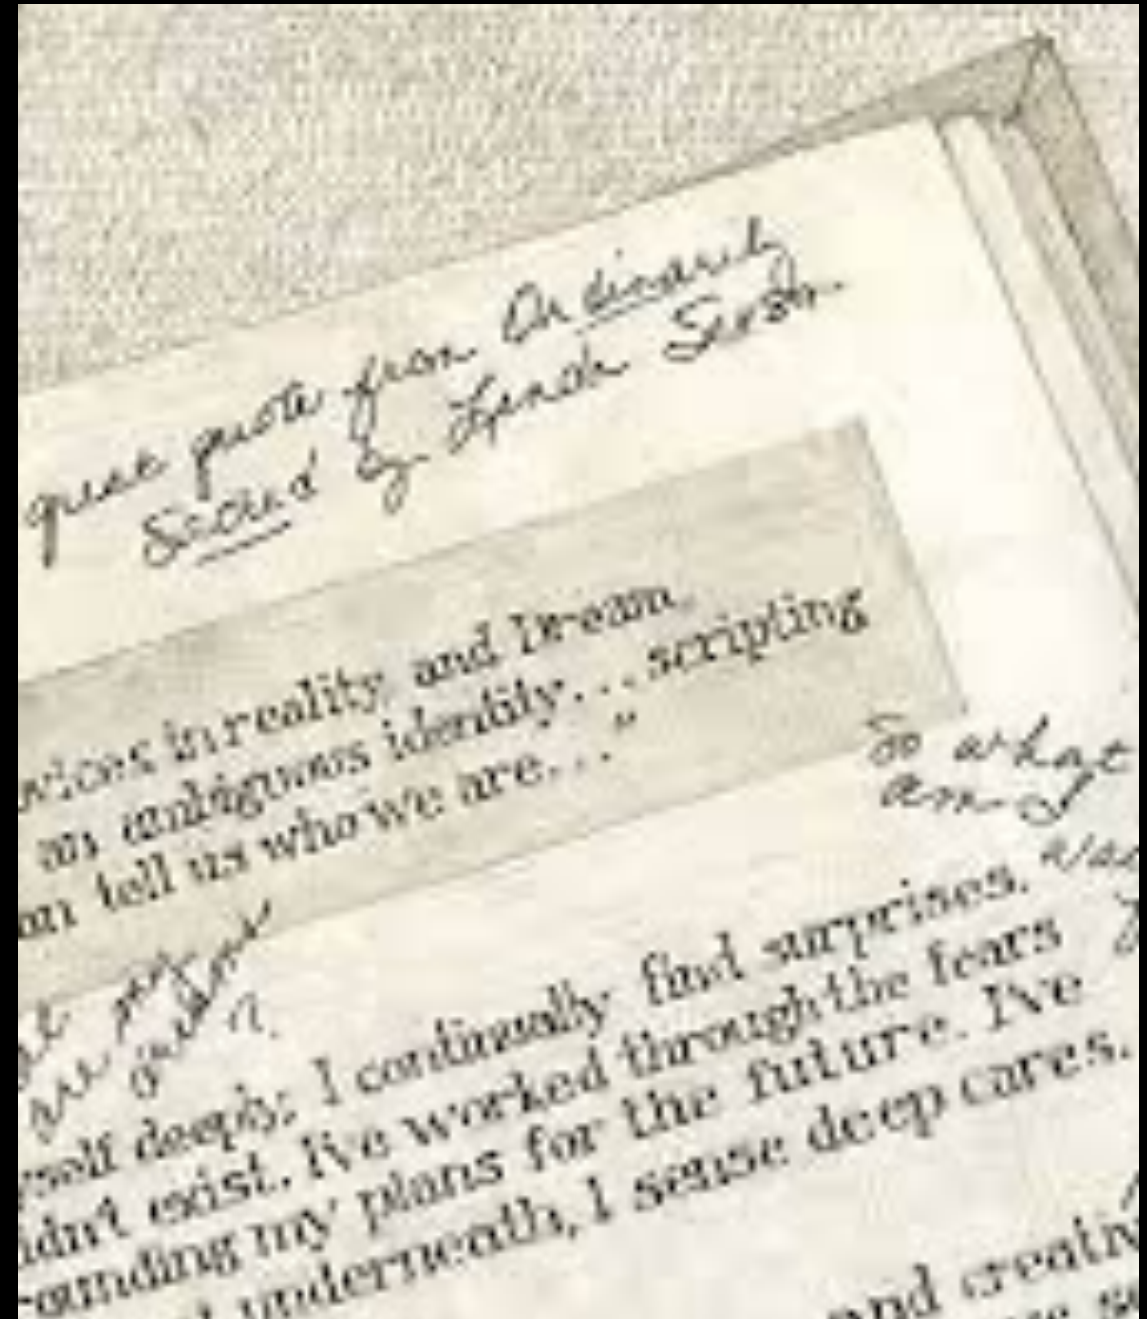 great quote from Ordinarily
Sacred by Lynda Sexson.
in reality and Dream.
an ambiguous identity...scripting
tell us who we are..."
So what
am I
my
are
?
deeply; I continually find surprises.
exist. I've worked through the fears
my plans for the future. I've
underneath, I sense deep cares.
and